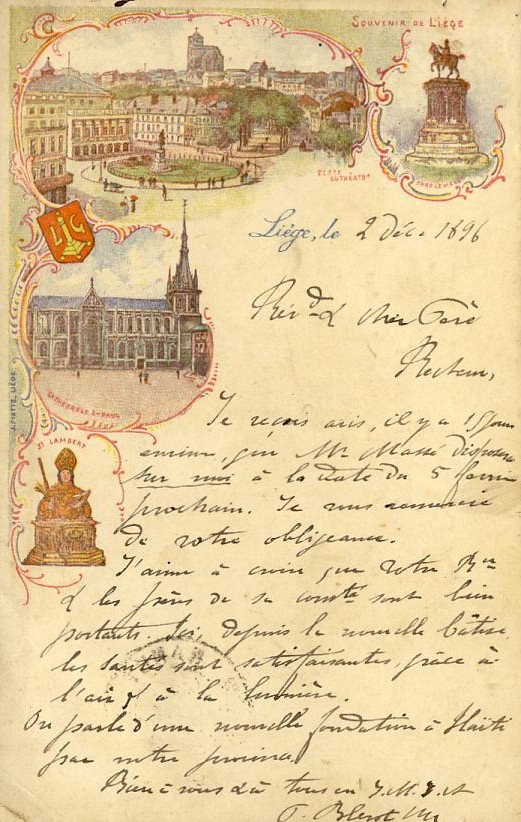 SOUVENIR DE LIÉGE
PLACE DU THÉATRE
CHARLEMAGNE
LIG
Liége, le 2 Déc. 1896
Révd & cher Père
Recteur,
CATHÉDRALE ST PAUL
J. PIETTE, LIÉGE
Je reçois avis, il y a 15 jours
environ, que Mr Massé disposera
sur moi à la date du 5
prochain. Je vous remercie
de votre obligeance.
ST LAMBERT
J'aime à croire que votre Rce
& les frères de sa comté sont bien
portants. Ici depuis la nouvelle bâtisse,
les santés sont satisfaisantes, grâce à
l'air & à la lumière.
On parle d'une nouvelle fondation à Haïti
par notre province.
Bien à vous & à tous en J.M.J.A